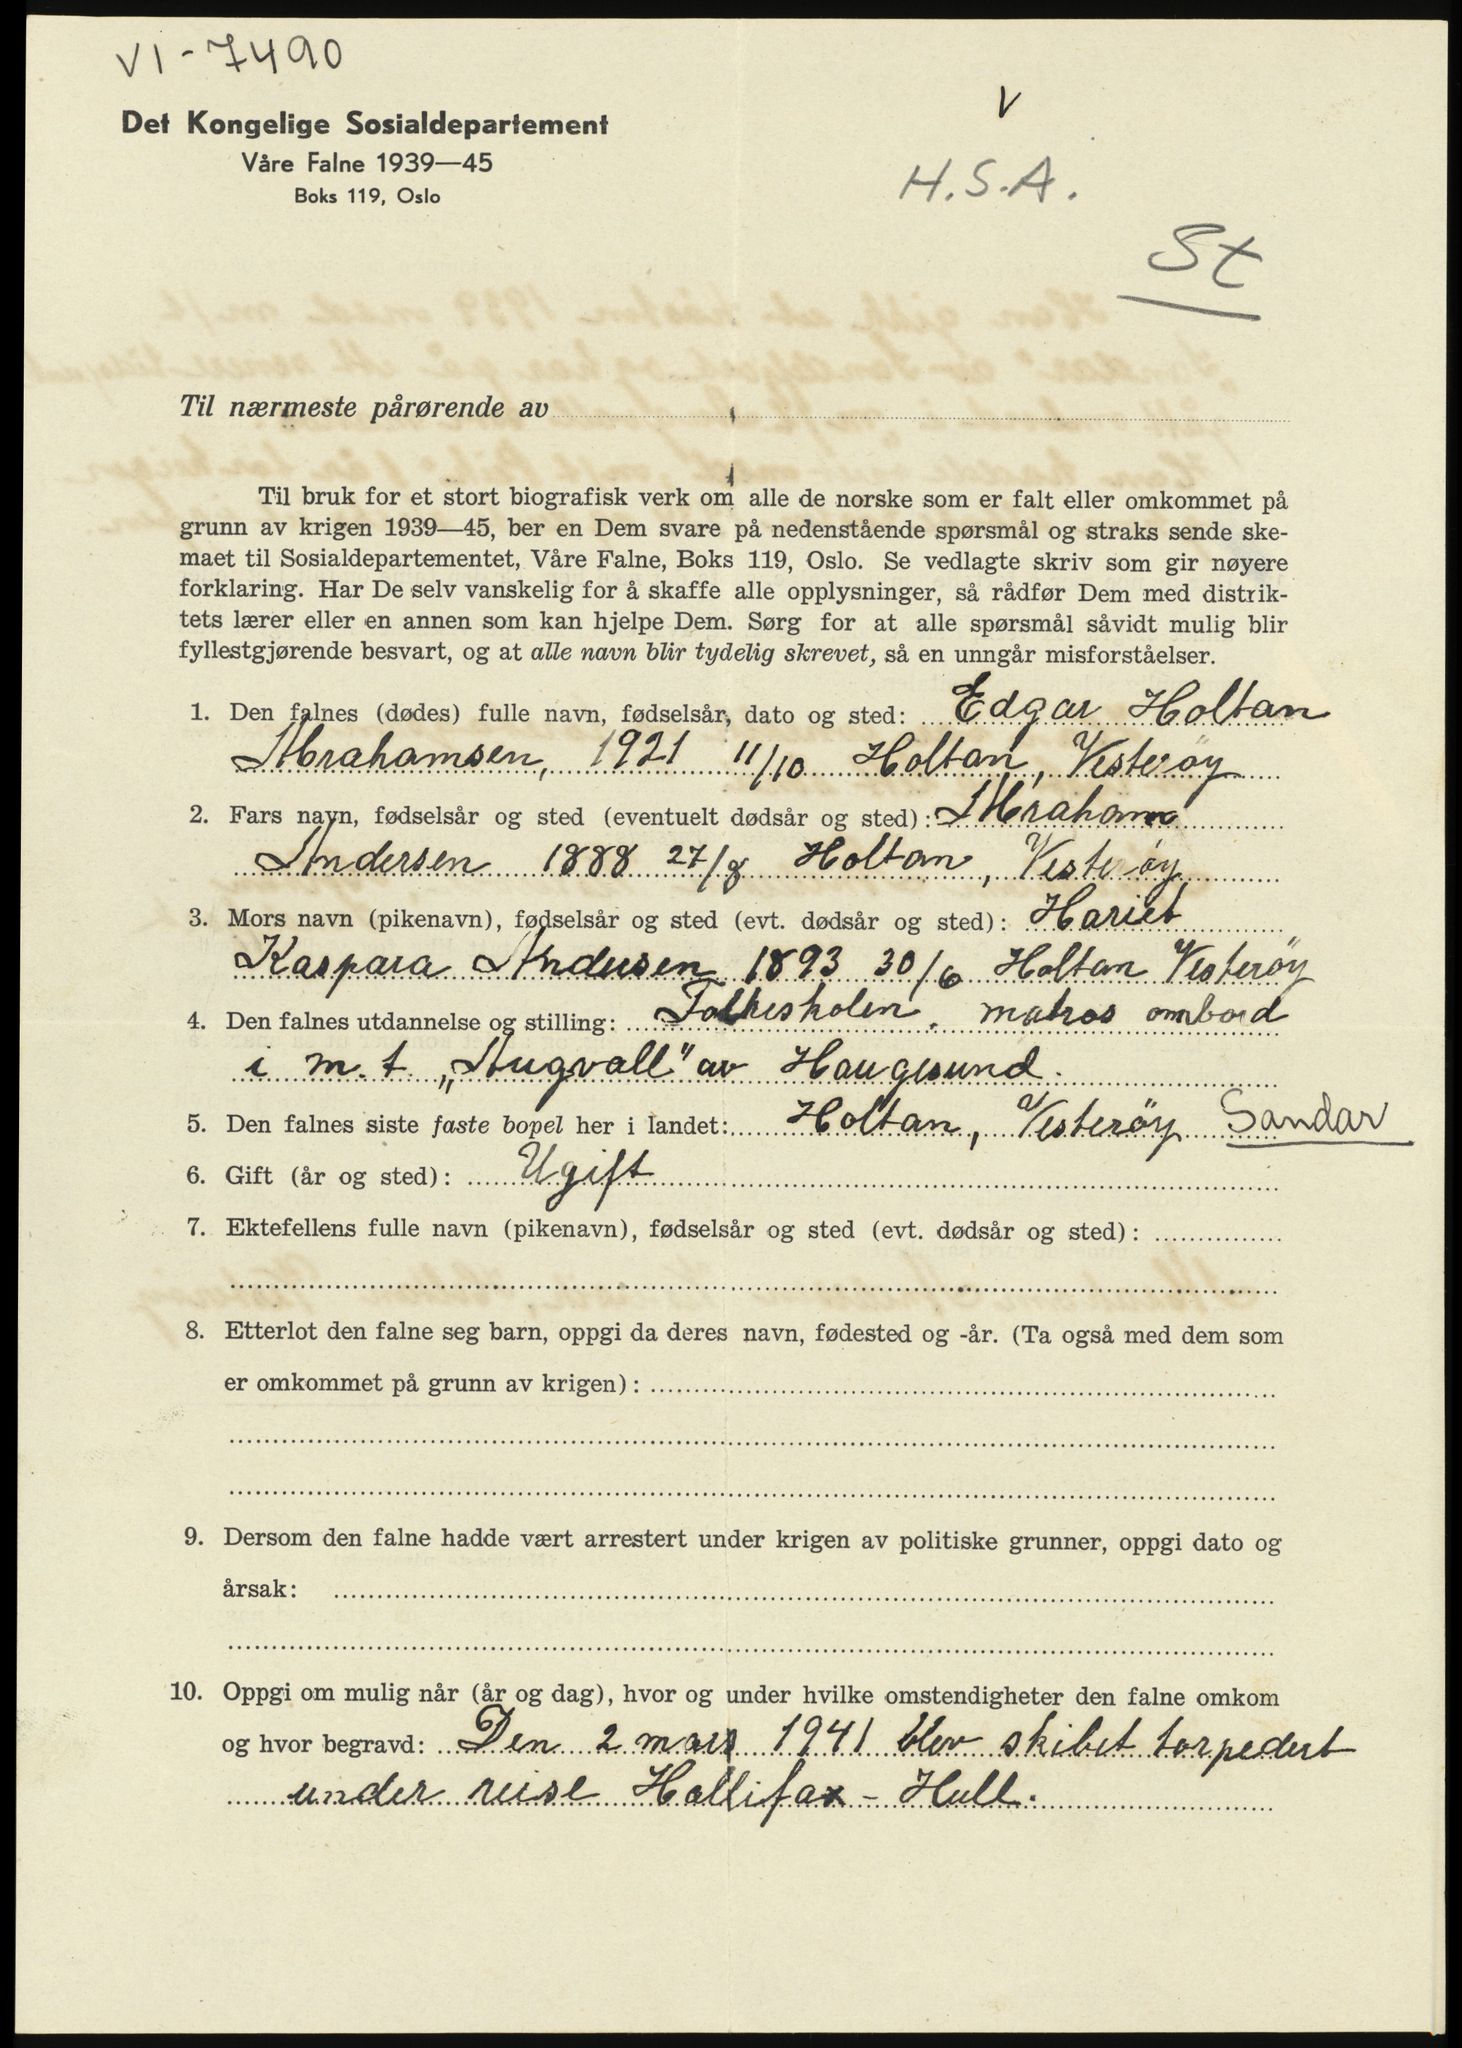 VI-7490
Det Kongelige Sosialdepartement
Våre Falne 1939—45
Boks 119, Oslo
V
H.S.A.
St
Til nærmeste pårørende av
Til bruk for et stort biografisk verk om alle de norske som er falt eller omkommet på
grunn av krigen 1939—45, ber en Dem svare på nedenstående spørsmål og straks sende ske-
maet til Sosialdepartementet, Våre Falne, Boks 119, Oslo. Se vedlagte skriv som gir nøyere
forklaring. Har De selv vanskelig for å skaffe alle opplysninger, så rådfør Dem med distrik-
tets lærer eller en annen som kan hjelpe Dem. Sørg for at alle spørsmål såvidt mulig blir
fyllestgjørende besvart, og at alle navn blir tydelig skrevet, så en unngår misforståelser.
1. Den falnes (dødes) fulle navn, fødselsår, dato og sted: Edgar Holtan
Abrahamsen, 1921 11/10 Holtan, Vesterøy
2. Fars navn, fødselsår og sted (eventuelt dødsår og sted): Abraham
Andersen 1888 27/8 Holtan, Vesterøy
3. Mors navn (pikenavn), fødselsår og sted (evt. dødsår og sted): Hariet
Kaspara Andersen 1893 30/6 Holtan Vesterøy
4. Den falnes utdannelse og stilling: Folkeskolen, matros ombord
i m.t. „Augvall" av Haugesund.
5. Den falnes siste faste bopel her i landet: Holtan, Vesterøy Sandar
6. Gift (år og sted): Ugift
7. Ektefellens fulle navn (pikenavn), fødselsår og sted (evt. dødsår og sted):
8. Etterlot den falne seg barn, oppgi da deres navn, fødested og -år. (Ta også med dem som
er omkommet på grunn av krigen):
9. Dersom den falne hadde vært arrestert under krigen av politiske grunner, oppgi dato og
årsak:
10. Oppgi om mulig når (år og dag), hvor og under hvilke omstendigheter den falne omkom
og hvor begravd: Den 2 mars 1941 blev skibet torpedert
under reise Hallifax - Hull.